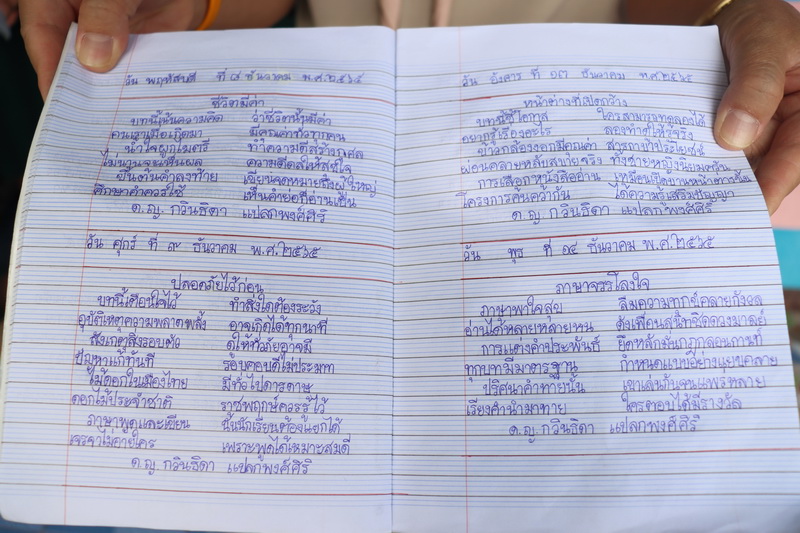 วัน พฤหัสบดี ที่ ๘ ธันวาคม พ.ศ.๒๕๖๕
ชีวิตมีค่า
บทนี้เน้นความคิด ว่าชีวิตนั้นมีค่า
คนเราเมื่อเกิดมา มีคุณค่าทั่วทุกคน
น้ำใจผูกไมตรี ทำความดีสร้างกุศล
ไม่นานจะเห็นผล ความดีดลให้สุขใจ
ขึ้นต้นคำลงท้าย เขียนจดหมายถึงผู้ใหญ่
ศึกษาคำควรใช้ เห็นคำย่อก็อ่านเป็น
ด.ญ. กวินธิดา แปลกพงศ์ศิริ
วัน ศุกร์ ที่ ๙ ธันวาคม พ.ศ.๒๕๖๕
ปลอดภัยไว้ก่อน
บทนี้เตือนใจไว้ ทำสิ่งใดต้องระวัง
อุบัติเหตุความพลาดพลั้ง อาจเกิดได้ทุกนาที
สังเกตุสิ่งรอบตัว ดูให้ทั่วภัยอาจมี
ปัญหาแก้ทันที รอบคอบดีไม่ประมาท
ไม้ดอกในเมืองไทย มีทั่วไปดารดาษ
ดอกไม้ประจำชาติ ราชพฤกษ์ควรรู้ไว้
ภาษาพูดและเขียน นั้นนักเรียนต้องแยกได้
เจรจาไม่อายใคร เพราะพูดได้เหมาะสมดี
ด.ญ. กวินธิดา แปลกพงศ์ศิริ
วัน อังคาร ที่ ๑๓ ธันวาคม พ.ศ.๒๕๖๕
หน้าต่างที่เปิดกว้าง
บทนี้ชี้โอกาส ใครสามารถทดลองได้
อยากรู้เรื่องอะไร ลองทำดูให้รู้จริง
ผ่อนคลายหลับสบายจริง ทั้งชายหญิงนิยมครัน
การเลือกหนังสืออ่าน เหมือนเปิดบานหน้าต่างนั้น
โครงการค้นคว้ากัน ได้ความรู้เสริมปัญญา
ด.ญ. กวินธิดา แปลกพงศ์ศิริ
วัน พุธ ที่ ๑๔ ธันวาคม พ.ศ.๒๕๖๕
ภาษาจรรโลงใจ
ภาษาพาใจสุข ลืมความทุกข์คลายกังวล
อ่านได้หลายหลายหน ดั่งเพื่อนสนิทชิดดวงมาลย์
การแต่งคำประพันธ์ ยึดหลักมั่นกฎกลอนกานท์
ทุกบทมีมาตรฐาน กำหนดแบบอย่างแยบคลาย
ปริศนาคำทายนั้น เขาเล่นกันจนแพร่หลาย
เรียงคำนำมาทาย ใครตอบได้มีรางวัล
ด.ญ. กวินธิดา แปลกพงศ์ศิริ